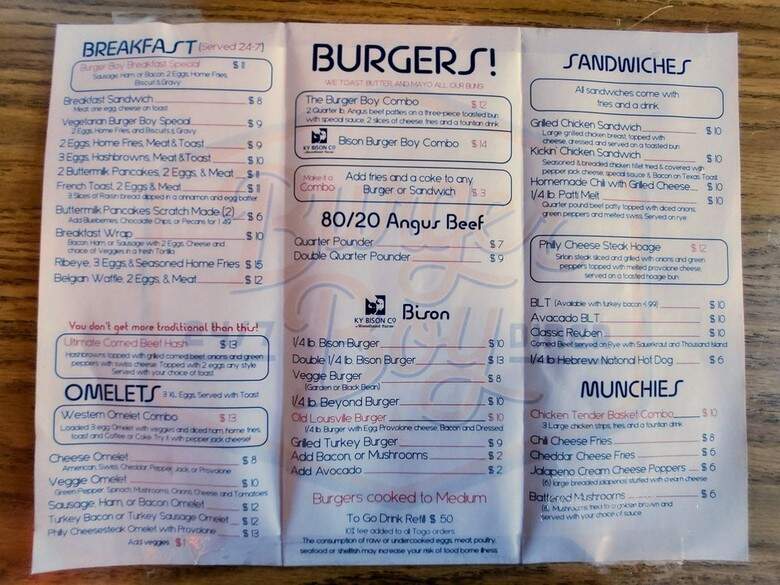 BREAKFAST (Served 24-7)
Burger Boy Breakfast Special $ 11
Sausage, Ham or Bacon 2 Eggs, Home Fries,
Biscuit & Gravy
Breakfast Sandwich $ 8
Meat, one egg, cheese on toast
Vegetarian Burger Boy Special $ 9
2 Eggs, Home Fries, and Biscuits & Gravy
2 Eggs, Home Fries, Meat & Toast $ 9
3 Eggs, Hashbrowns, Meat & Toast $ 10
2 Buttermilk Pancakes, 2 Eggs, & Meat $ 11
French Toast, 2 Eggs & Meat $ 11
3 Slices of Raisin bread dipped in a cinnamon and egg batter
Buttermilk Pancakes Scratch Made (2) $ 6
Add Blueberries, Chocolate Chips, or Pecans for 1.49
Breakfast Wrap $ 10
Bacon, Ham, or Sausage with 2 Eggs, Cheese and
choice of Veggies in a fresh Tortilla
Ribeye, 3 Eggs, & Seasoned Home Fries $ 15
Belgian Waffle, 2 Eggs, & Meat $ 12
You don't get more traditional than this!
Ultimate Corned Beef Hash $ 13
Hashbrowns topped with grilled corned beef, onions and green
peppers with swiss cheese. Topped with 2 eggs any style
Served with your choice of toast
OMELETS 3 XL Eggs, Served with Toast
Western Omelet Combo $ 13
Loaded 3 egg Omelet with veggies and diced ham, home fries,
toast and Coffee or Coke. Try it with pepper jack cheese!
Cheese Omelet $ 8
American, Swiss, Cheddar, Pepper Jack, or Provolone
Veggie Omelet $ 10
Green Pepper, Spinach, Mushrooms, Onions, Cheese and Tomatoes
Sausage, Ham, or Bacon Omelet $ 12
Turkey Bacon or Turkey Sausage Omelet $ 12
Philly Cheesesteak Omelet with Provolone $ 13
Add veggies $ 1
BURGERS!
WE TOAST, BUTTER, AND MAYO ALL OUR BUNS
The Burger Boy Combo $ 12
2 Quarter lb. Angus beef patties on a three-piece toasted bun
with special sauce, 2 slices of cheese, fries and a fountain drink
KY BISON CO
Woodland Farm
Bison Burger Boy Combo $ 14
Make it a
Combo
Add fries and a coke to any
Burger or Sandwich $ 3
80/20 Angus Beef
Quarter Pounder $ 7
Double Quarter Pounder $ 9
KY BISON CO
Woodland Farm
Bison
1/4 lb. Bison Burger $ 10
Double 1/4 lb. Bison Burger $ 13
Veggie Burger $ 8
(Garden or Black Bean)
1/4 lb. Beyond Burger $ 10
Old Louisville Burger $ 10
1/4 lb Burger with Egg, Provolone cheese, Bacon and Dressed
Grilled Turkey Burger $ 9
Add Bacon, or Mushrooms $ 2
Add Avocado $ 2
Burgers cooked to Medium
To Go Drink Refill $ .50
10% fee added to all Togo orders
The consumption of raw or undercooked eggs, meat, poultry,
seafood or shellfish may increase your risk of food borne illness
SANDWICHES
All sandwiches come with
fries and a drink
Grilled Chicken Sandwich $ 10
Large grilled chicken breast, topped with
cheese, dressed and served on a toasted bun
Kickin' Chicken Sandwich $ 10
Seasoned & breaded chicken fillet fried & covered with
pepper jack cheese, special sauce & Bacon on Texas Toast
Homemade Chili with Grilled Cheese $ 10
1/4 lb. Patti Melt $ 10
Quarter pound beef patty topped with diced onions,
green peppers and melted swiss. Served on rye
Philly Cheese Steak Hoagie $ 12
Sirloin steak sliced and grilled with onions and green
peppers topped with melted provolone cheese,
served on a toasted hoagie bun
BLT (Available with turkey bacon 4.99) $ 10
Avacado BLT $ 10
Classic Reuben $ 10
Corned Beef served on Rye with Sauerkraut and Thousand Island
1/4 lb Hebrew National Hot Dog $ 6
MUNCHIES
Chicken Tender Basket Combo $ 10
3 Large chicken strips, fries, and a fountain drink
Chili Cheese Fries $ 8
Cheddar Cheese Fries $ 6
Jalapeno Cream Cheese Poppers $ 6
(6) large breaded jalapenos stuffed with cream cheese
Battered Mushrooms $ 6
Mushrooms fried to a golden brown and
served with your choice of sauce